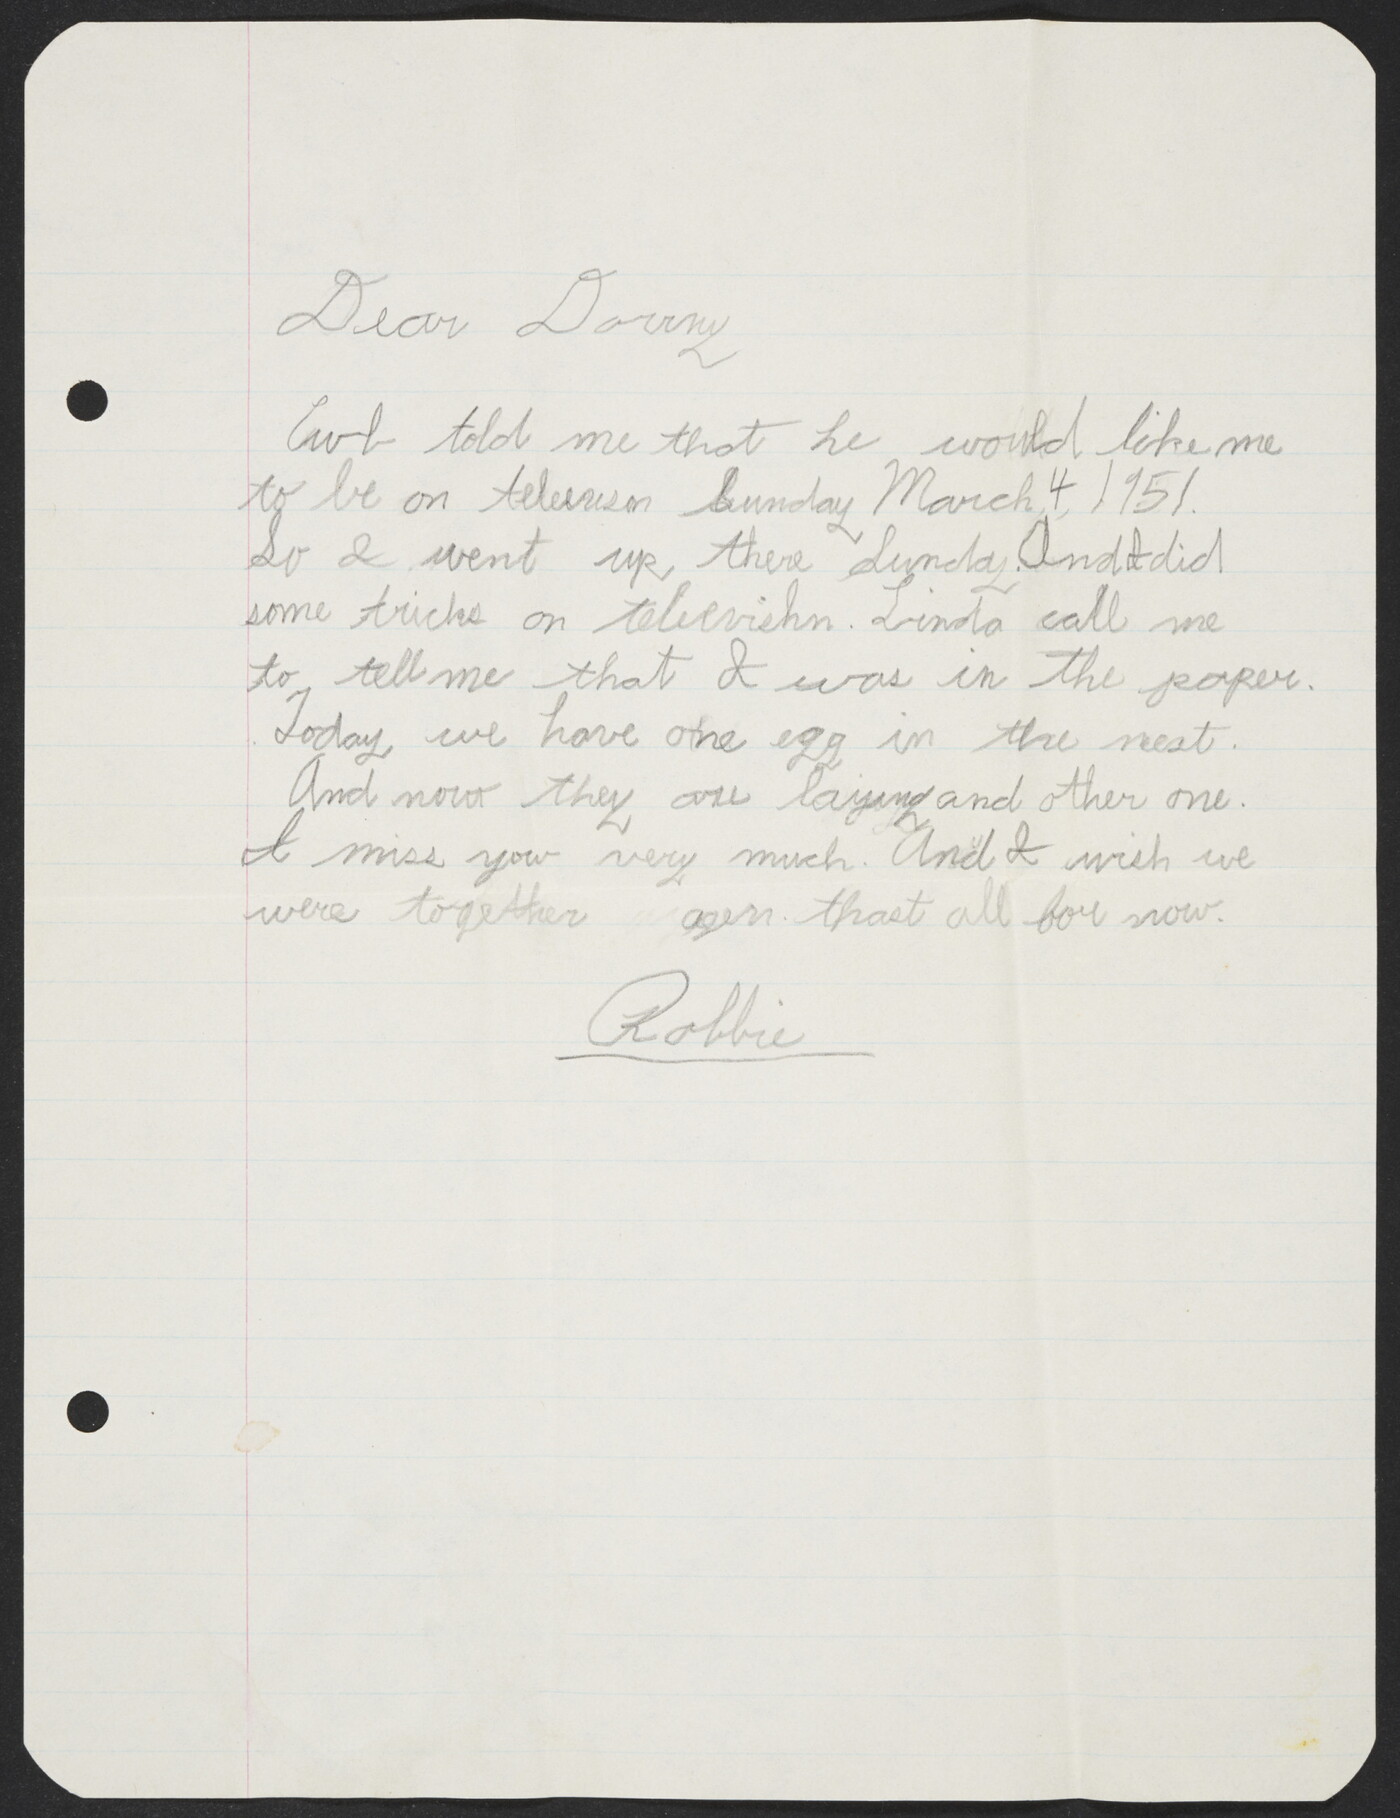 Dear Dorrny
told me that he would like me
to be on Sunday March, 4, 1951.
So I went up, there Sunday. And I did
some tricks on televishn. Linda call me
to tell me that I was in the paper.
Today we have one egg in the nest.
And now they are laying and other one.
I miss you very much. And I wish we
were together agen. thast all for now.
Robbie